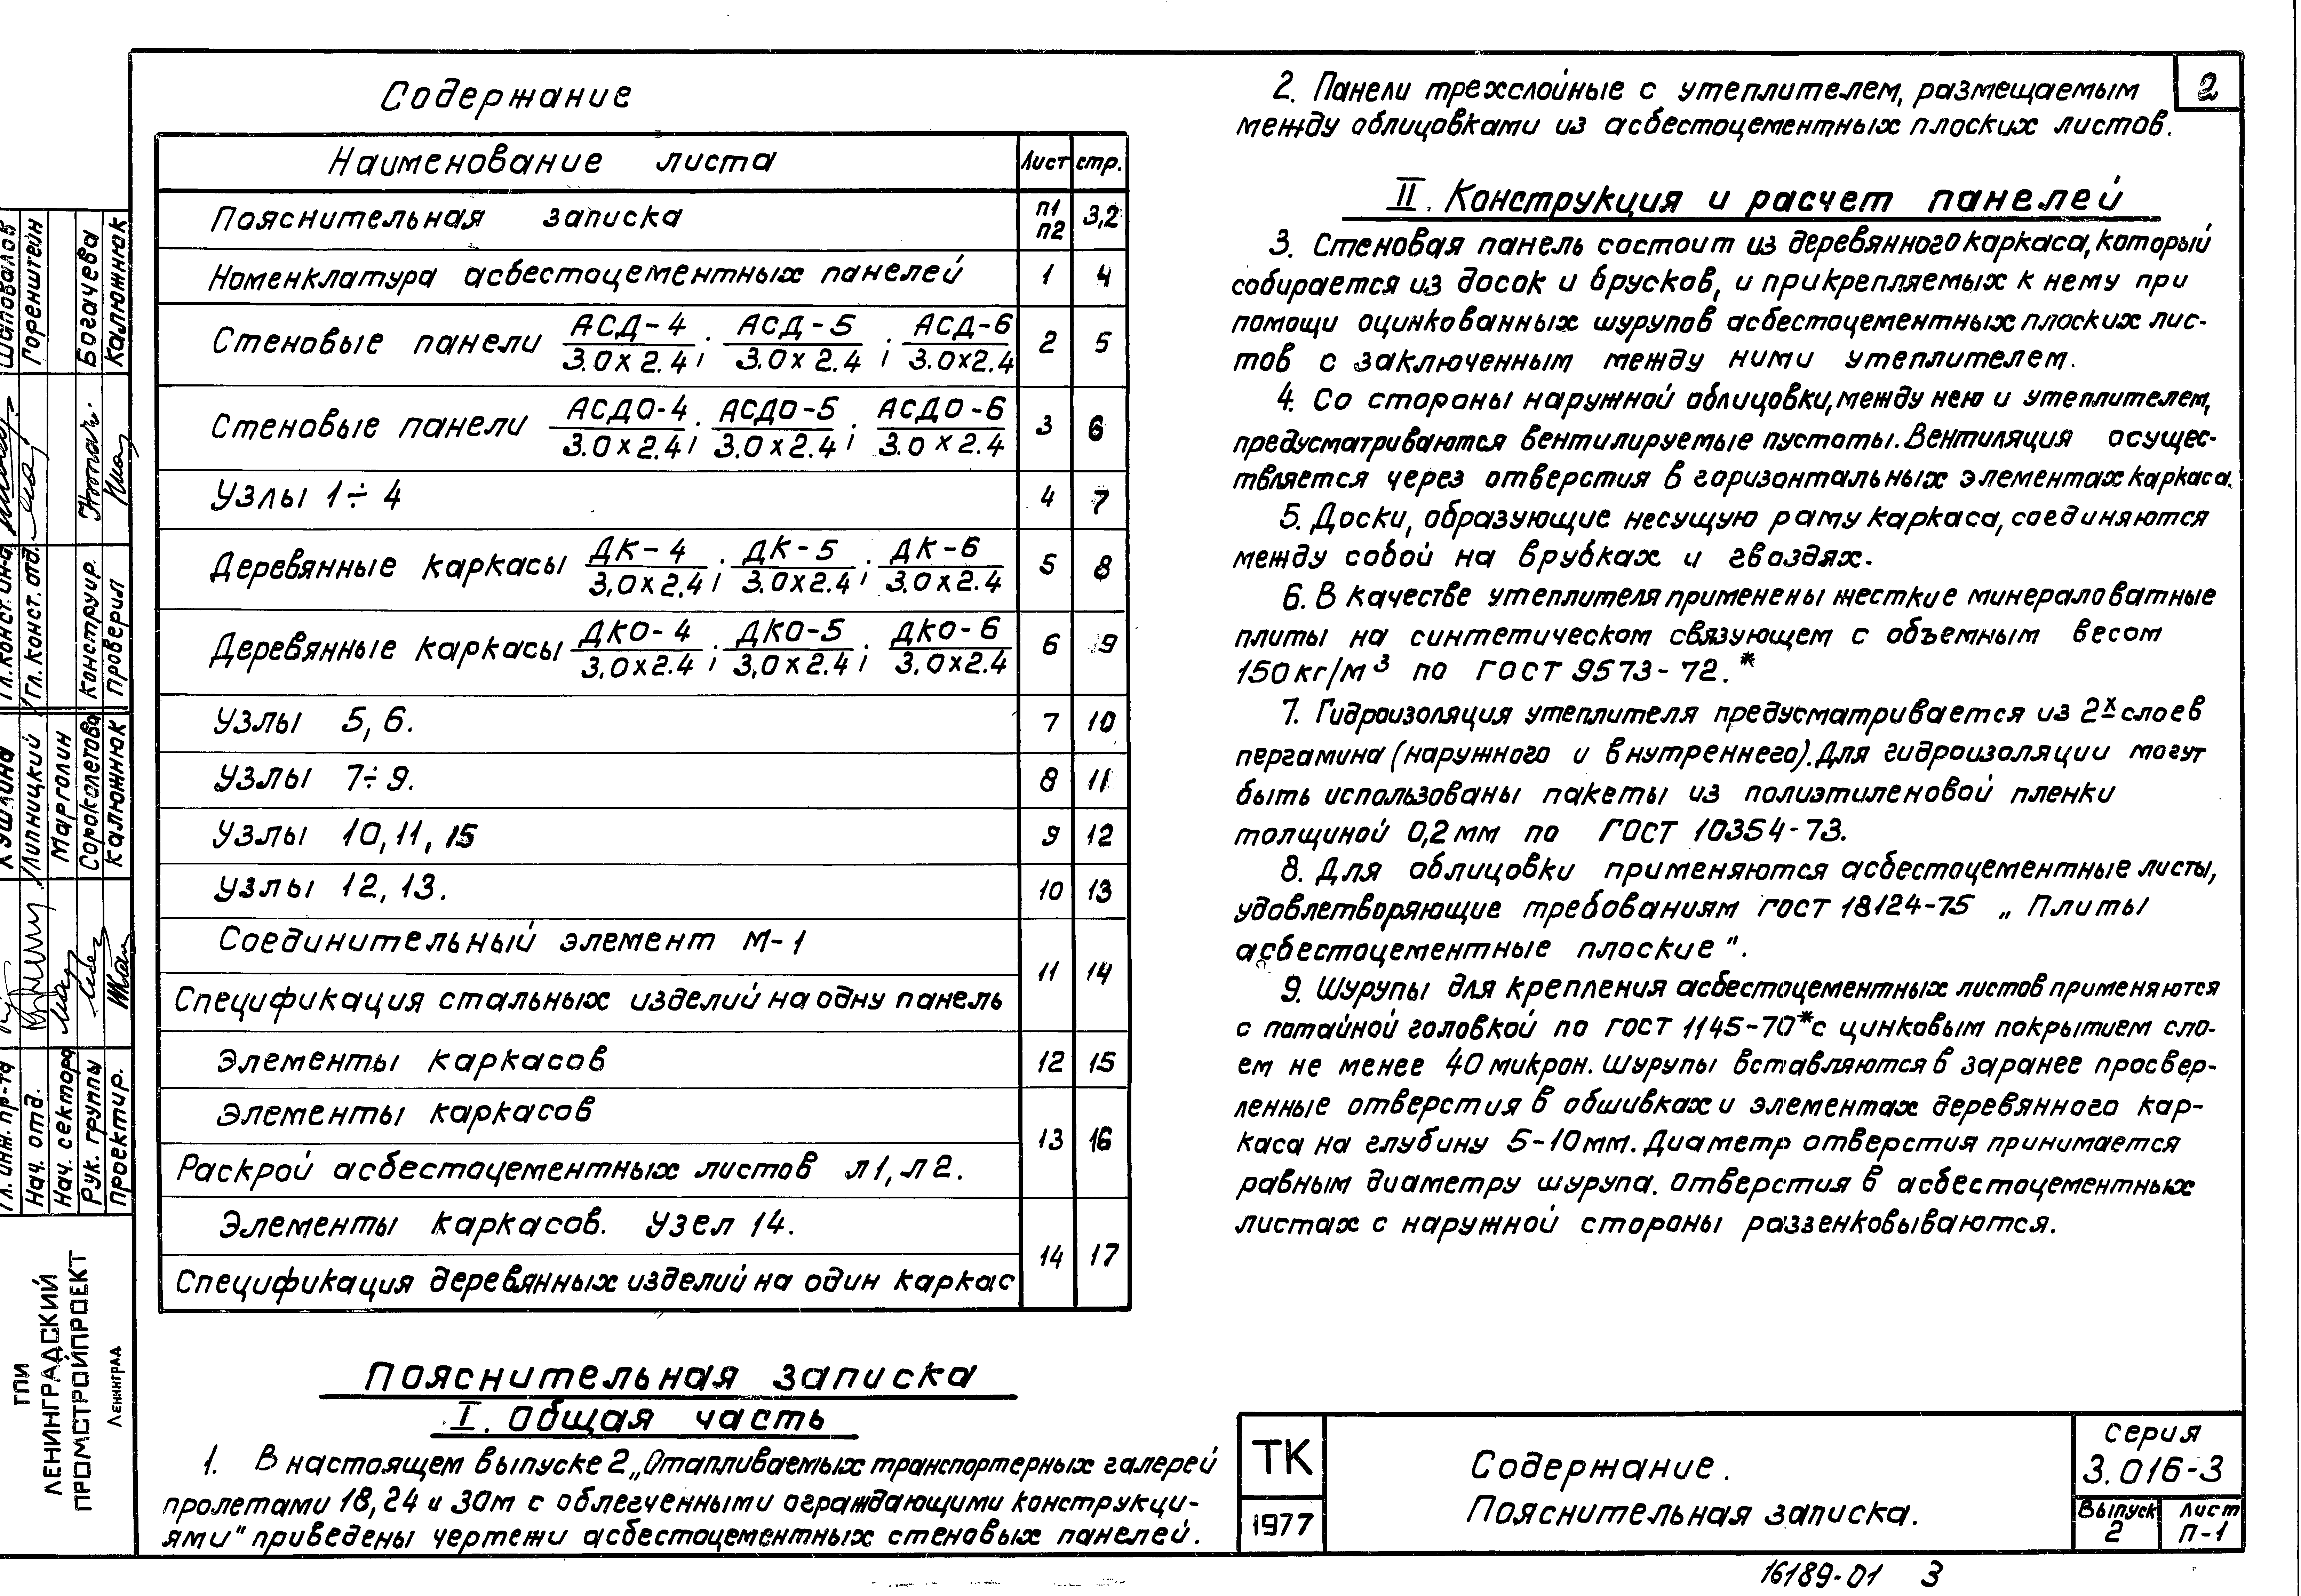 Содержание
Наименование листа Лист стр.
Пояснительная записка п1 п2 3,2
Номенклатура асбестоцементных панелей 1 4
Стеновые панели АСД-4/3.0х2.4; АСД-5/3.0х2.4; АСД-6/3.0х2.4 2 5
Стеновые панели АСДО-4/3.0х2.4; АСДО-5/3.0х2.4; АСДО-6/3.0х2.4 3 6
Узлы 1÷4 4 7
Деревянные каркасы ДК-4/3,0х2.4; ДК-5/3.0х2.4; ДК-6/3.0х2.4 5 8
Деревянные каркасы ДКО-4/3.0х2.4; ДКО-5/3,0х2.4; ДКО-6/3.0х2.4 6 9
Узлы 5,6. 7 10
Узлы 7÷9. 8 11
Узлы 10,11,15 9 12
Узлы 12,13. 10 13
Соединительный элемент М-1
11 14
Спецификация стальных изделий на одну панель
Элементы каркасов 12 15
Элементы каркасов
13 16
Раскрой асбестоцементных листов л1, л2.
Элементы каркасов. Узел 14.
14 17
Спецификация деревянных изделий на один каркас
Пояснительная записка
I. Общая часть
1. В настоящем выпуске 2 „Отапливаемых транспортерных галерей
пролетами 18, 24 и 30м с облегченными ограждающими конструкци-
ями" приведены чертежи асбестоцементных стеновых панелей.
2
2. Панели трехслойные с утеплителем, размещаемым
между облицовками из асбестоцементных плоских листов.
II. Конструкция и расчет панелей
3. Стеновая панель состоит из деревянного каркаса, который
собирается из досок и брусков, и прикрепляемых к нему при
помощи оцинкованных шурупов асбестоцементных плоских лис-
тов с заключенным между ними утеплителем.
4. Со стороны наружной облицовки, между нею и утеплителем,
предусматриваются вентилируемые пустоты. Вентиляция осущес-
твляется через отверстия в горизонтальных элементах каркаса.
5. Доски, образующие несущую раму каркаса, соединяются
между собой на врубках и гвоздях.
6. В качестве утеплителя применены жесткие минераловатные
плиты на синтетическом связующем с объемным весом
150 кг/м³ по ГОСТ 9573-72.*
7. Гидроизоляция утеплителя предусматривается из 2х слоев
пергамина (наружного и внутреннего). Для гидроизоляции могут
быть использованы пакеты из полиэтиленовой пленки
толщиной 0,2 мм по ГОСТ 10354-73.
8. Для облицовки применяются асбестоцементные листы,
удовлетворяющие требованиям ГОСТ 18124-75 „Плиты
асбестоцементные плоские".
9. Шурупы для крепления асбестоцементных листов применяются
с потайной головкой по ГОСТ 1145-70* с цинковым покрытием сло-
ем не менее 40 микрон. Шурупы вставляются в заранее просвер-
ленные отверстия в обшивках и элементах деревянного кар-
каса на глубину 5-10мм. Диаметр отверстия принимается
равным диаметру шурупа. Отверстия в асбестоцементных
листах с наружной стороны раззенковываются.
ТК
1977
Содержание.
Пояснительная записка.
серия
3.016-3
Выпуск Лист
2 П-1
16189-01 3
Шаповалов
Горенштейн
Богачева
Калюжнак
Гл. конст. отд.
Конструир.
Проверил
Липницкий
Марголин
Сороколетова
Калюжнак
Гл. инж. пр-та
Нач. отд.
Нач. сектора
Рук. группы
Проектир.
ГПИ
ЛЕНИНГРАДСКИЙ
ПРОМСТРОЙПРОЕКТ
Ленинград